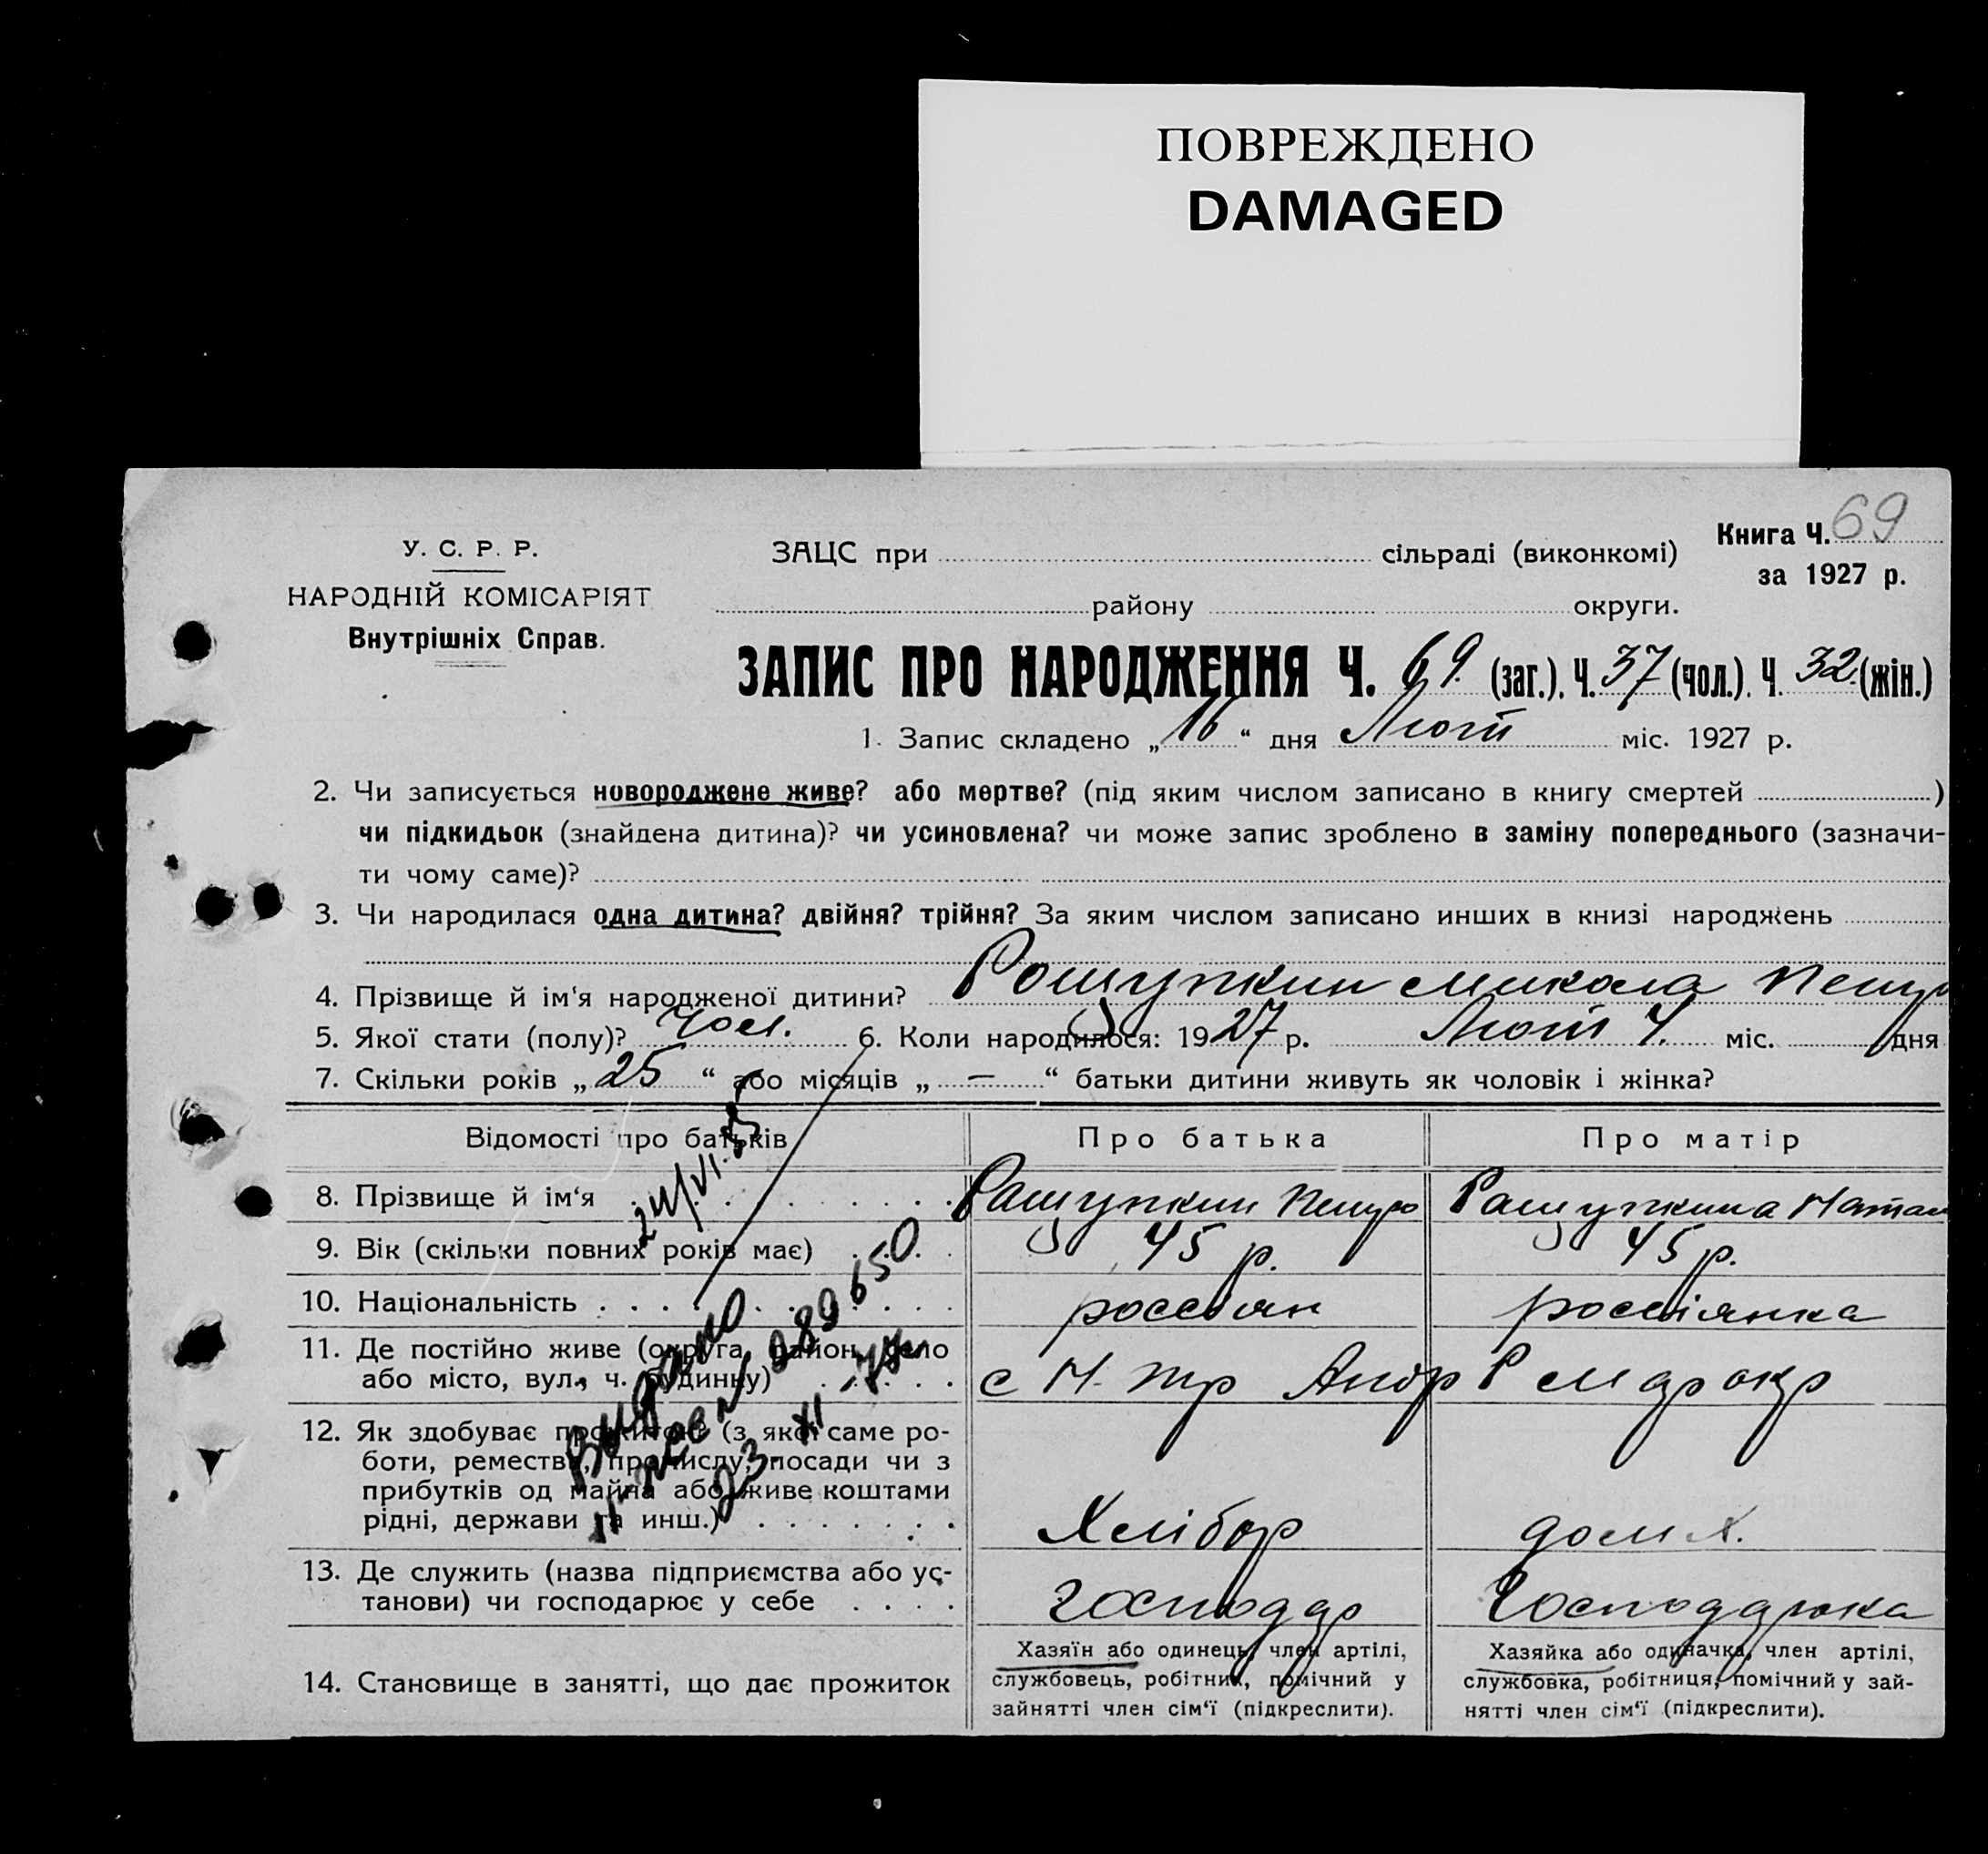 ПОВРЕЖДЕНО
DAMAGED
У. С. Р. Р.
НАРОДНІЙ КОМІСАРІЯТ
Внутрішніх Справ.
ЗАЦС при сільраді (виконкомі)
району округи.
Книга Ч. 69
за 1927 р.
ЗАПИС ПРО НАРОДЖЕННЯ Ч. 69. (заг.). Ч. 37 (чол.). Ч. 32. (жін.)
1. Запис складено „16“ дня Лют міс. 1927 р.
2. Чи записується новороджене живе? або мертве? (під яким числом записано в книгу смертей )
чи підкидьок (знайдена дитина)? чи усиновлена? чи може запис зроблено в заміну попереднього (зазначи-
ти чому саме)?
3. Чи народилася одна дитина? двійня? трійня? За яким числом записано инших в книзі народжень
4. Прізвище й ім'я народженої дитини? Микола Петр
5. Якої стати (полу)? чол. 6. Коли народилося: 1927 р. Лют 4. міс. дня
7. Скільки років „25“ або місяців „—“ батьки дитини живуть як чоловік і жінка?
Відомості про батьків Про батька Про матір
8. Прізвище й ім'я Петро Натал
9. Вік (скільки повних років має) 45 р. 45 р.
10. Національність россіян россіянка
11. Де постійно живе (округа, район, село
або місто, вул., ч. будинку) с Н.
12. Як здобуває прожиток (з якої саме ро-
боти, ремества, промислу, посади чи з
прибутків од майна або живе коштами
рідні, держави та инш.) Хлібор дом х.
13. Де служить (назва підприємства або ус-
танови) чи господарює у себе господар Господарка
14. Становище в занятті, що дає прожиток
Хазяїн або одинець, член артілі,
службовець, робітник, помічний у
зайнятті член сім'ї (підкреслити).
Хазяйка або одиначка, член артілі,
службовка, робітниця, помічний у зай-
нятті член сім'ї (підкреслити).
Видано
289650
23. XI